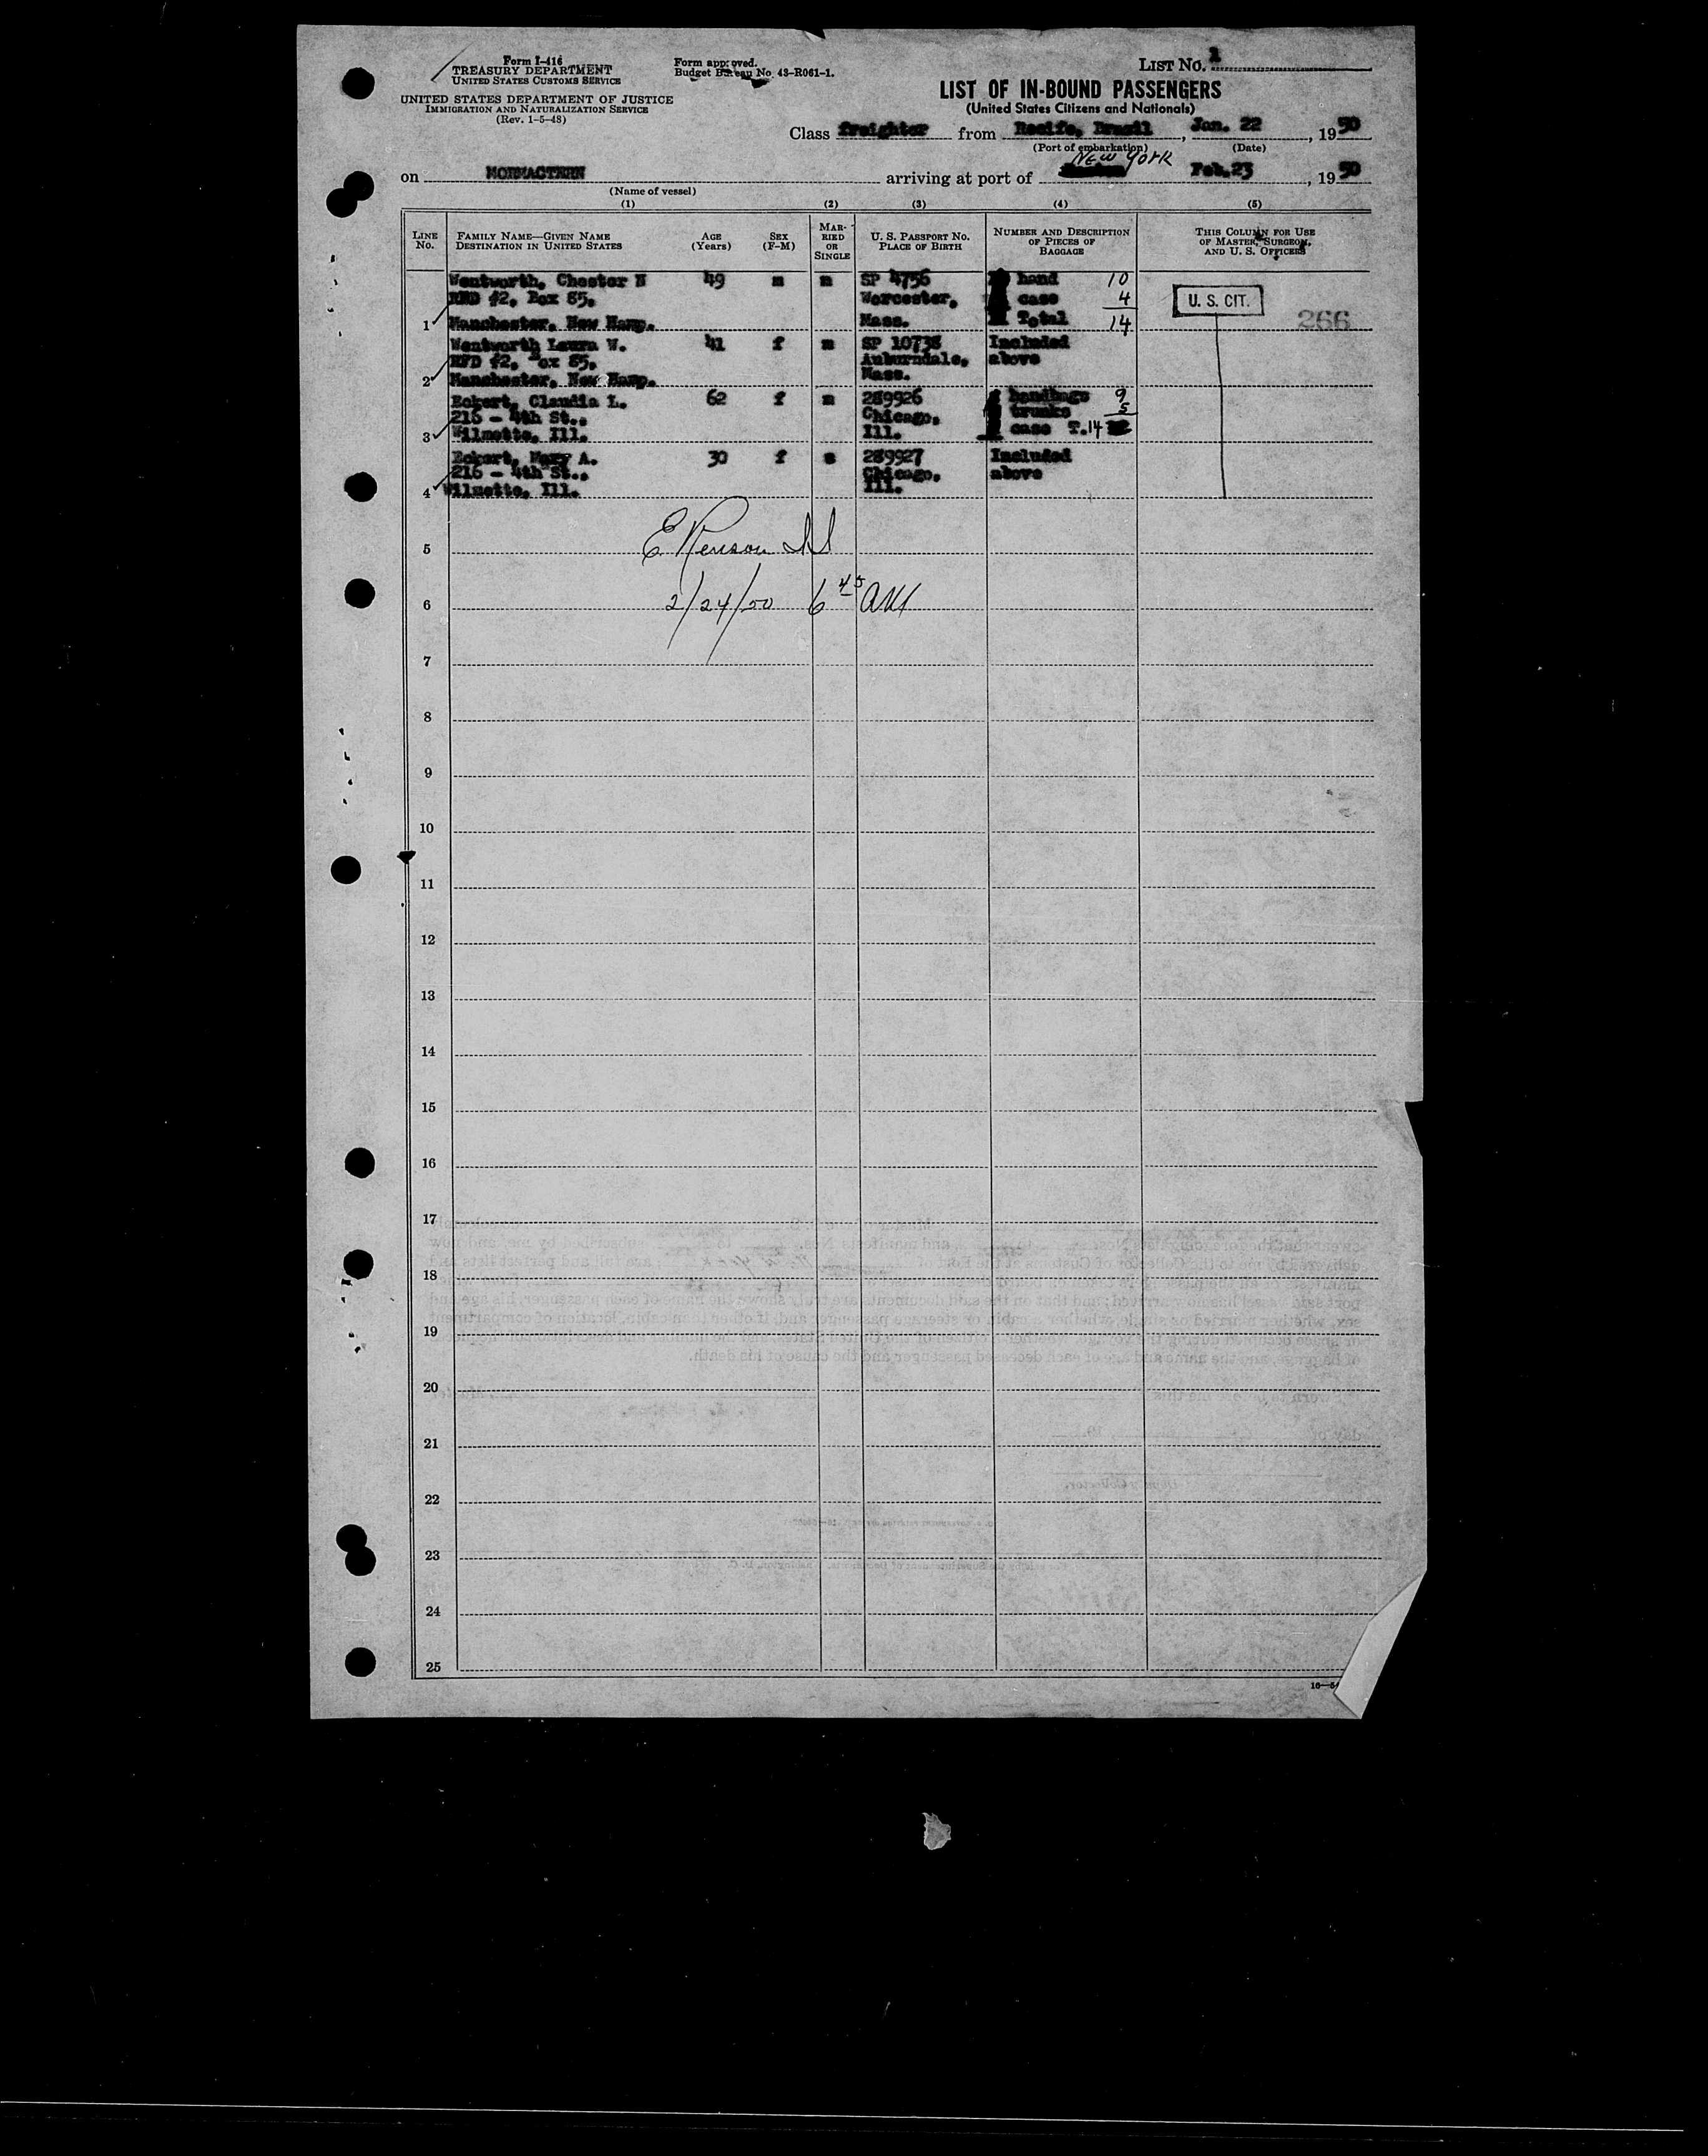 Form I-416
TREASURY DEPARTMENT
UNITED STATES CUSTOMS SERVICE
UNITED STATES DEPARTMENT OF JUSTICE
IMMIGRATION AND NATURALIZATION SERVICE
(Rev. 1-5-48)
Form approved.
Budget Bureau No. 43-R061-1.
LIST No. 1
LIST OF IN-BOUND PASSENGERS
(United States Citizens and Nationals)
Class freighter from Recife, Brazil, Jan. 22, 1950
(Port of embarkation) (Date)
on MORMACTERN arriving at port of New York Feb.23, 1950
(Name of vessel)
(1) (2) (3) (4) (5)
LINE No. FAMILY NAME—GIVEN NAME DESTINATION IN UNITED STATES AGE (Years) SEX (F-M) MARRIED OR SINGLE U. S. PASSPORT No. PLACE OF BIRTH NUMBER AND DESCRIPTION OF PIECES OF BAGGAGE THIS COLUMN FOR USE OF MASTER, SURGEON, AND U. S. OFFICERS
Wentworth, Chester N 49 m m SP 4756 hand 10
RFD #2, Box 85, Worcester, case 4 U. S. CIT.
1 Manchester, New Hamp. Mass. Total 14 266
Wentworth Laura W. 41 f m SP 10738 Included
RFD #2, Box 85, Auburndale, above
2 Manchester, New Hamp. Mass.
Eckert, Claudia L. 62 f m 289926 handbags 9
216 - 4th St., Chicago, trunks 5
3 Wilmette, Ill. Ill. case T.14
Eckert, Mary A. 30 f s 289927 Included
216 - 4th St., Chicago, above
4 Wilmette, Ill. Ill.
5
2/24/50 6 45 AM
6
7
8
9
10
11
12
13
14
15
16
17
18
19
20
21
22
23
24
25